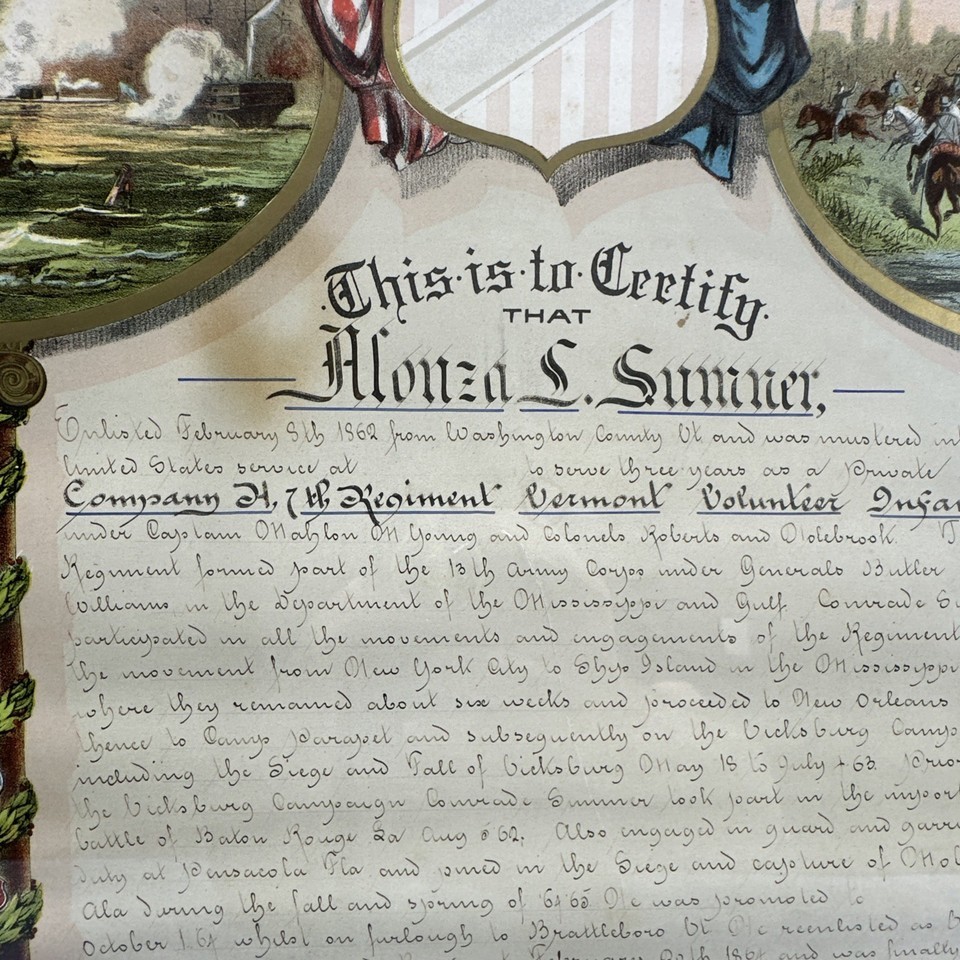 This · is · to · Certify
THAT
Alonza L. Sumner,
Enlisted February 8th 1862 from Washington County Vt. and was mustered
United States service at to serve three years as a Private
Company H, 7th Regiment Vermont Volunteer
under Captain Mahlon M Young and Colonels Roberts and Holebrook.
Regiment formed part of the 13th Army Corps under Generals Butler
Williams in the Department of the Mississippi and Gulf. Comrade
participated in all the movements and engagements of the Regiment
the movement from New York City to Ship Island in the Mississippi
where they remained about six weeks and proceeded to New Orleans
thence to Camp Parapet and subsequently on the Vicksburg
including the Siege and Fall of Vicksburg May 18 to July 4 63. Prior
the Vicksburg Campaign Comrade Sumner took part in the
battle of Baton Rouge La Aug 5 62; Also engaged in guard and
duty at Pensacola Fla and joined in the Siege and capture of
Ala during the fall and spring of '64 '65 He was promoted to
October 1. 64 whilst on furlough to Brattleboro Vt. He reenlisted as
February 1864 and was finally